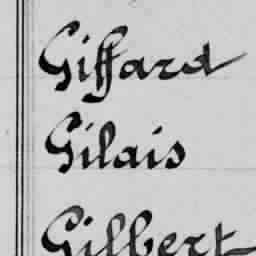 Giffard
Gilais
Gilbert